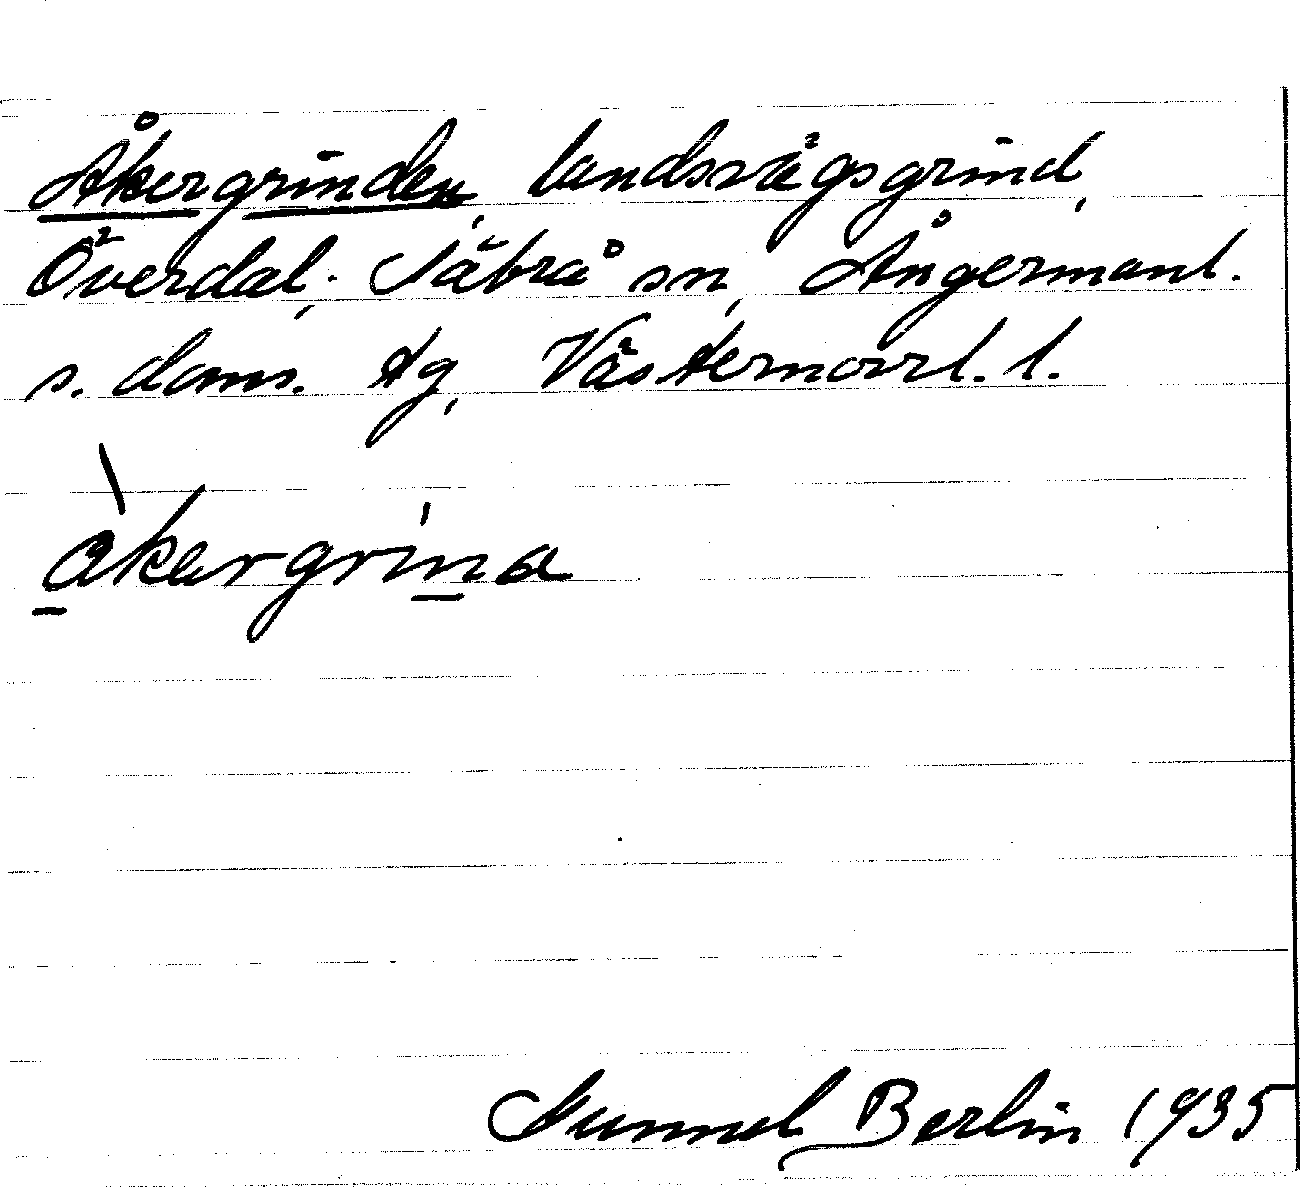 Åkergrinden, landsvägsgrind,
Överdal, Säbrå sn, Ångermanl.
s. doms. tg, Västernorrl. l.
åkergrina
Gunnel Berlin 1935